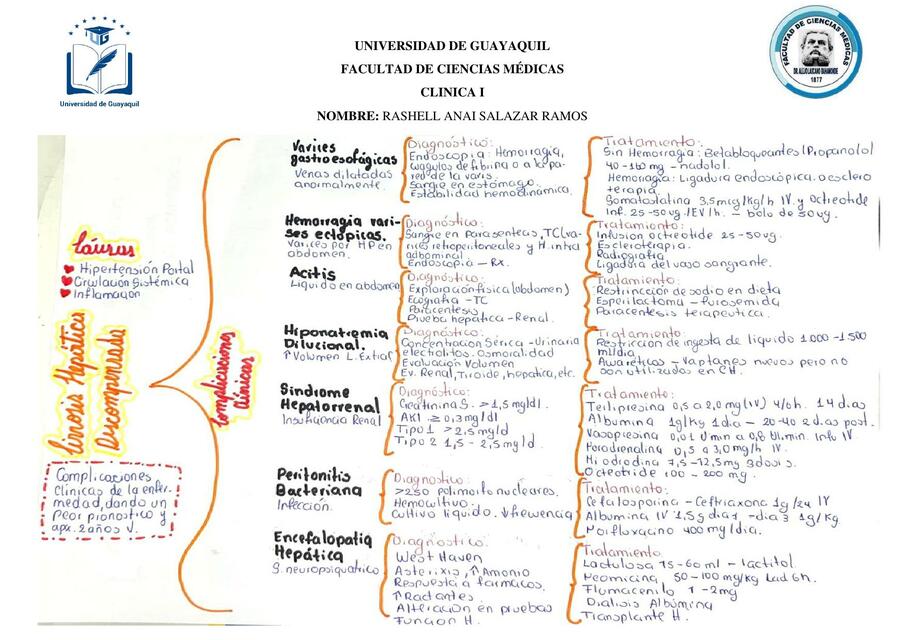 UNIVERSIDAD DE GUAYAQUIL
FACULTAD DE CIENCIAS MÉDICAS
CLINICA I
NOMBRE: RASHELL ANAI SALAZAR RAMOS
UG
Universidad de Guayaquil
FACULTAD DE CIENCIAS MÉDICAS
DR. ALEJO LASCANO BAHAMONDE
1877
Causas
Hipertensión Portal
Circulación Sistémica
Inflamación
Cirrosis Hepática
Descompensada
Complicaciones
clínicas de la enfer-
medad, dando un
peor pronostico y
apx. 2 años V.
Complicaciones
clínicas
Varices
gastroesofágicas
Venas dilatadas
anormalmente.
Diagnóstico:
Endoscopia: Hemorragia,
coagulos de fibrina o a la pa-
red de la varis.
Sangre en estómago.
Estabilidad hemodinamica.
Tratamiento:
Sin Hemorragia: Betabloqueantes (Propanolol
40-160 mg - nadolol.
Hemorragia: Ligadura endoscópica o esclero
terapia.
Somatostatina 3,5 mcg/kg/h IV. y Octreotide
Inf. 25-50 ug /EV/h. - bolo de 50 ug.
Hemorragia vari-
ses ectópicas.
Varices por HP en
abdomen.
Diagnóstico:
Sangre en parasenteas, TC (va-
rices retroperitoneales y H. intra
abdominal
Endoscopia - RX.
Tratamiento:
Infusion octreotide 25-50ug.
Escleroterapia.
Radiografia
Ligadura del vaso sangrante.
Acitis
Liquido en abdomen
Diagnóstico:
Exploración física (abdomen)
Ecografia - TC
Paracentesis
Prueba hepática - Renal.
Tratamiento:
Restrincción de sodio en dieta
Esperilactoma - furosemida
Paracentesis terapeutica.
Hiponatremia
Dilucional.
↑ Volumen L. Extrar
Diagnóstico:
Concentración Sérica - Urinaria
electrolitos. Osmoralidad
Evaluación Volumen
Ev. Renal, Tiroide, hepatica, etc.
Tratamiento:
Restriccion de ingesta de líquido 1.000 - 1.500
ml/dia.
Awareticas - Vaptanes nuevos pero no
son utilizados en CH.
Sindrome
Hepatorrenal
Insuficiencia Renal
Diagnóstico:
Creatinina S. > 1,5 mg/dl.
AKI ≥ 0,3 mg/dl
Tipo 1 > 2,5 mg/d
Tipo 2 1,5 - 2,5 mg/d.
Tratamiento:
Terlipresina 0,5 a 2,0 mg (IV) 4/6h. 14 dias
Albumina 1g/kg 1 dia - 20-40 2 dias post.
Vasopresina 0,01 U min a 0,8 U/min. Inf. IV
Noradrenalina 0,5 a 3,0 mg/h IV.
Midodrina 7,5 -12,5 mg 3 dosis.
Octeotride 100 - 200 mg.
Peritonitis
Bacteriana
Infección.
Diagnostico:
>250 polimorfo nucleares.
Hemocultivo.
Cultivo liquido. ↓ frecuencia
Tratamiento:
Cefalosporina - Ceftriaxona 1g/24 IV
Albumina IV 1,5 g dia 1 - dia 3 1g/kg.
Moifloxacino 400 mg/dia.
Encefalopatia
Hepática
S. neuropsiquatrico
Diagnostico:
West Haven
Asterixis, ↑ Amonio
Respuesta a farmacos.
↑ Ractantes.
Alteración en pruebas
Función H.
Tratamiento.
Lactulosa 15-60 ml - lactitol.
Neomicina 50-100 mg/kg Cad 6h.
Flumacenilo 1 -2mg
Dialisis Albúmina
Transplante H.